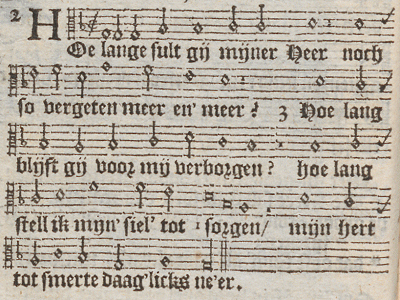 2 HOe lange sult gij mijner Heer noch
so vergeten meer en' meer? 3 Hoe lang
blijft gij voor mij verborgen? hoe lang
stell ik mijn' siel' tot sorgen/ mijn hert
tot smerte daag'licks ne'er.